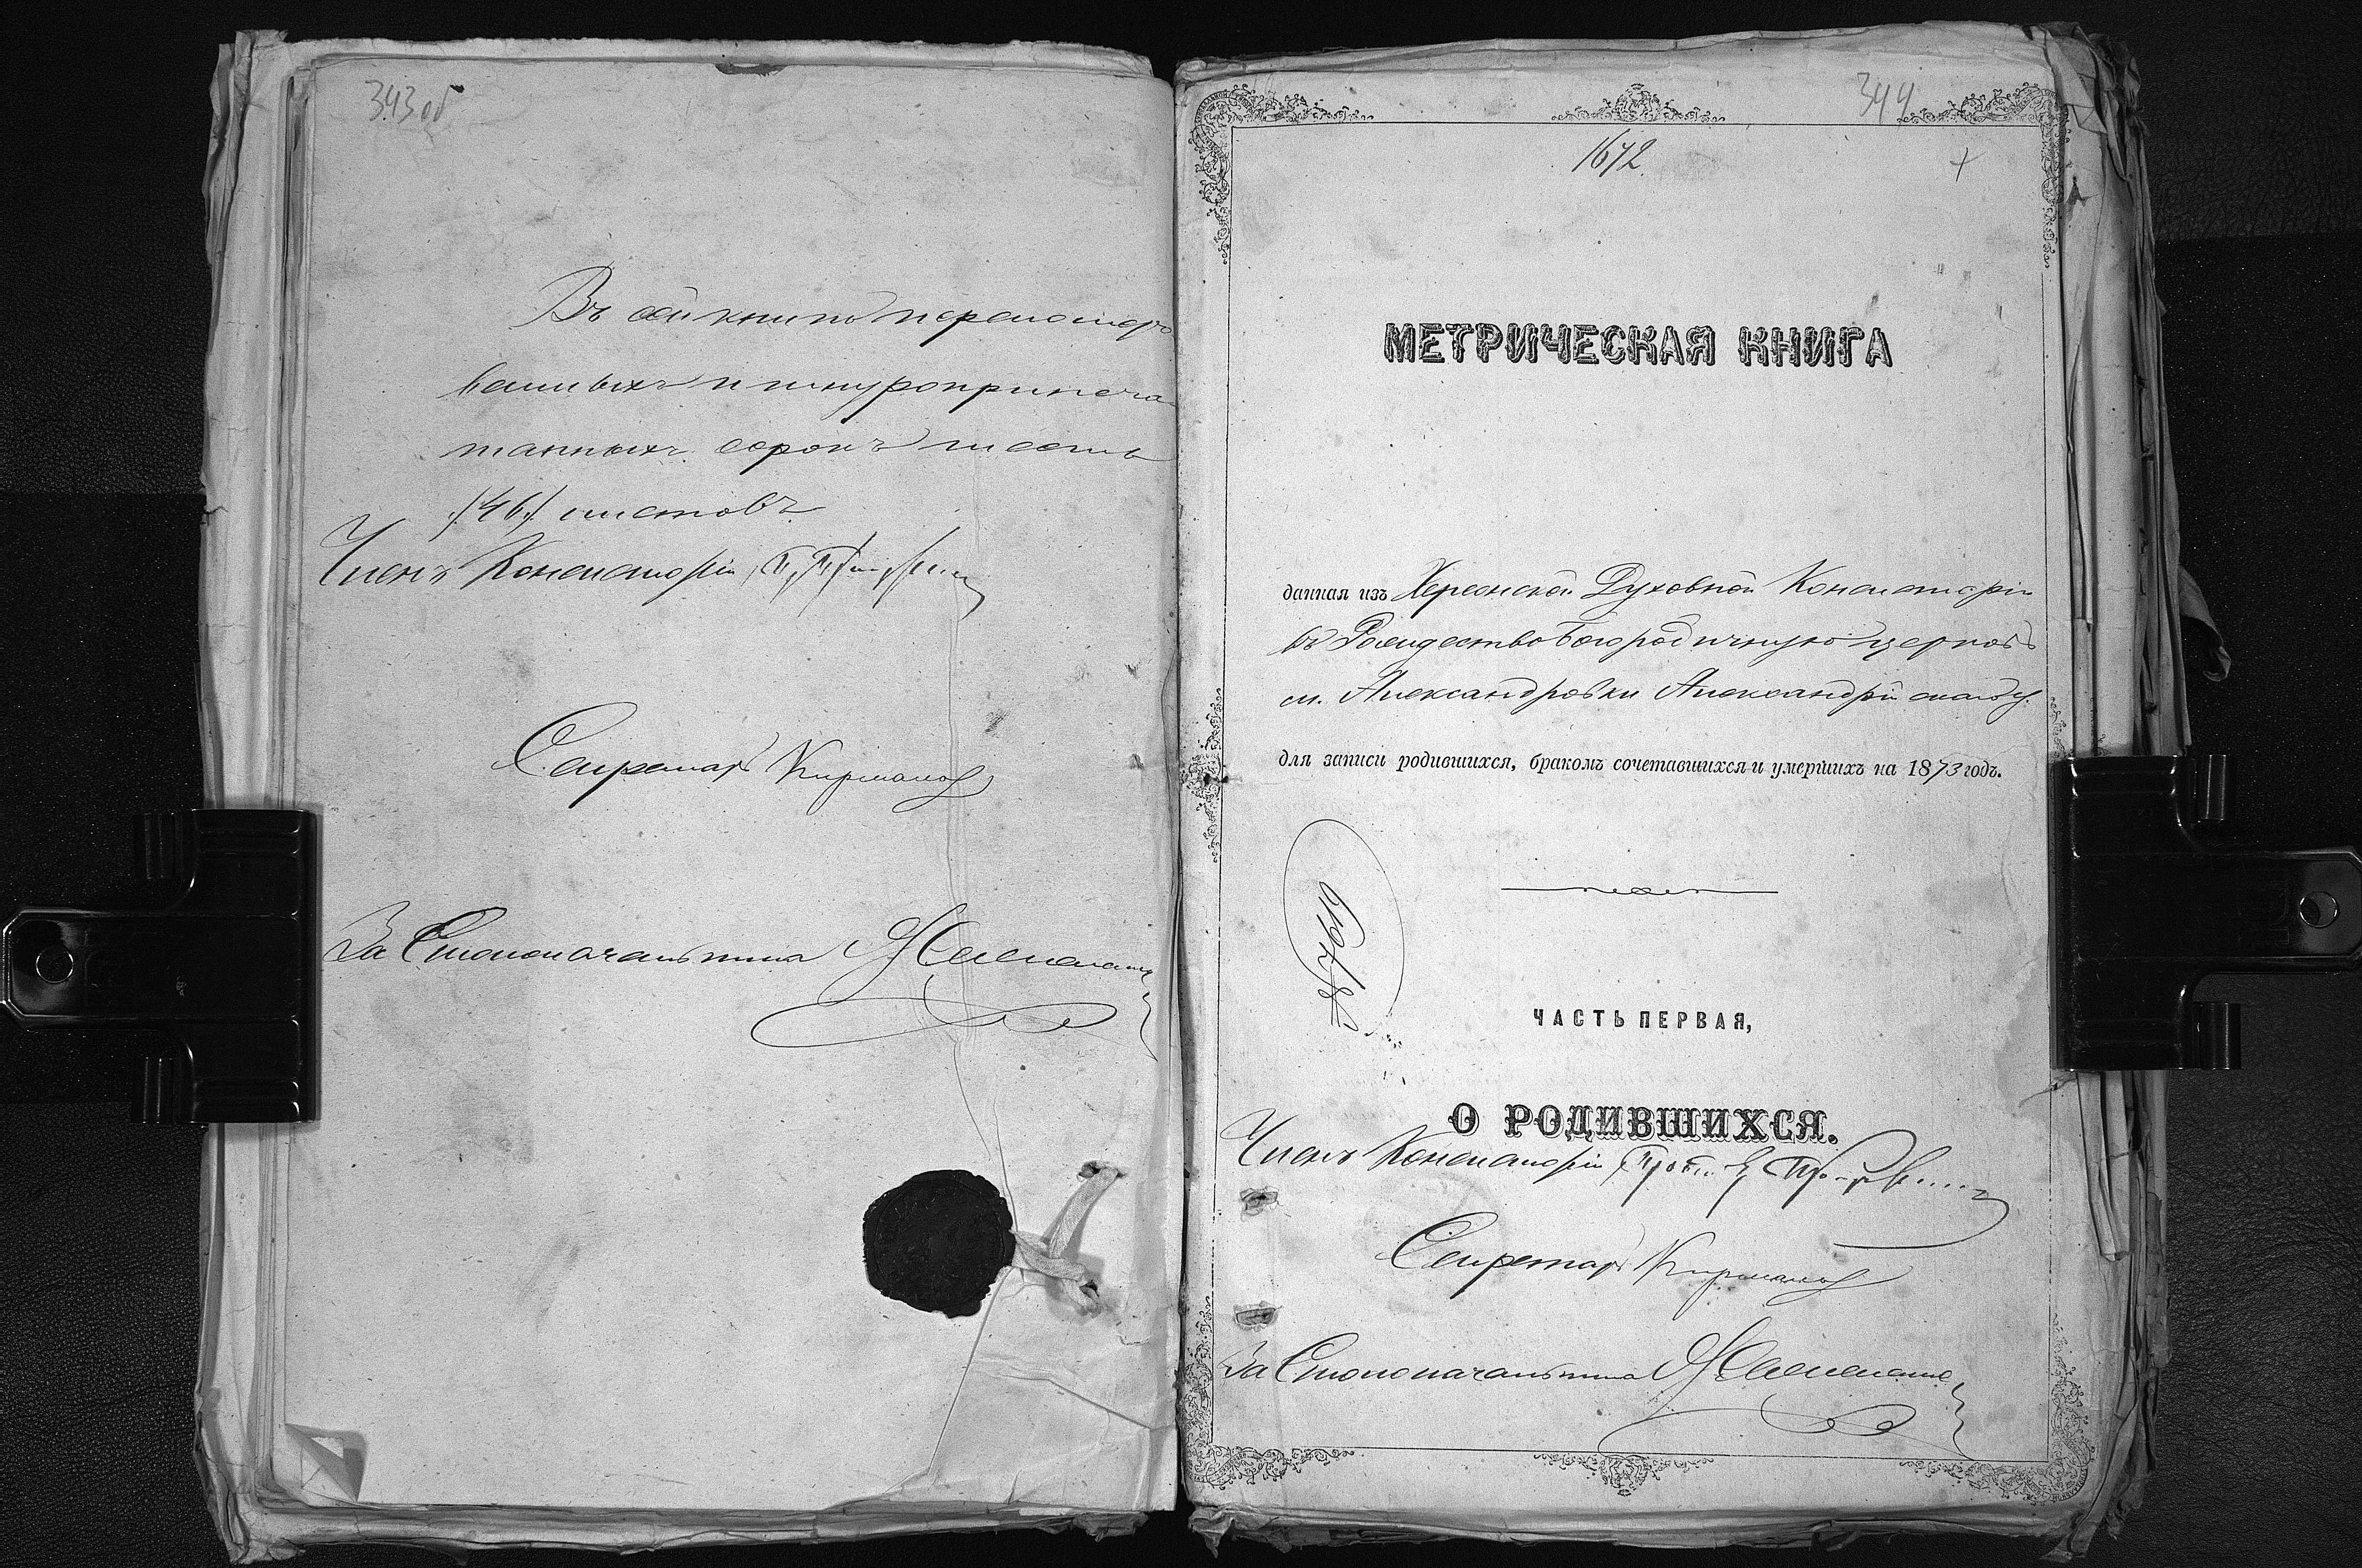 343 об
Въ сей книгѣ перенумеро
ванныхъ и шнуроприпеча
танныхъ сорокъ шесть
/46/ листовъ
Членъ Консисторіи
Секретарь
За Столоначальника
344
1672.
МЕТРИЧЕСКАЯ КНИГА
данная изъ Херсонской Духовной Консисторіи
въ Рождество Богородичную церковь
м. Александровки Александрійскаго у.
для записи родившихся, бракомъ сочетавшихся и умершихъ на 1873 годъ.
ЧАСТЬ ПЕРВАЯ,
О РОДИВШИХСЯ.
Членъ Консисторіи Прот.
Секретарь
За Столоначальника